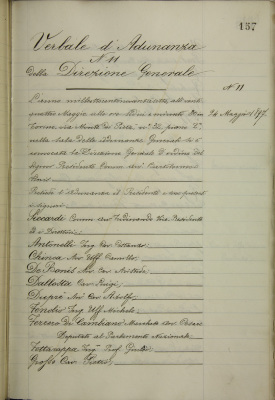 157
Verbale d'Adunanza
N. 11
della Direzione Generale
N. 11
L'anno milleottocentonovantasette, alli venti
quattro Maggio alle ore
24 Maggio 1897.
Torino, via Monte di Pietà, n° 32, piano 2°,
nella Sala delle Adunanze
convocata la Direzione Generale d'ordine del
Signor Presidente
Presiede l'adunanza il Presidente e sono presenti
i Signori
Siccardi Comm. Avv. Ferdinando Vice Presidente
Antonelli Ing. Cav. Costanzo
Chiesa Avv. Uff. Camillo
De Bonis Avv. Cav.
Dallotta Cav. Luigi
Dupré Avv. Cav. Adolfo
Fenolio Ing. Uff. Michele
Ferrero di Cambiano Marchese Avv. Cesare
Deputato al Parlamento Nazionale
Fettarappa Ing. Prof. Giulio
Grosso Cav.